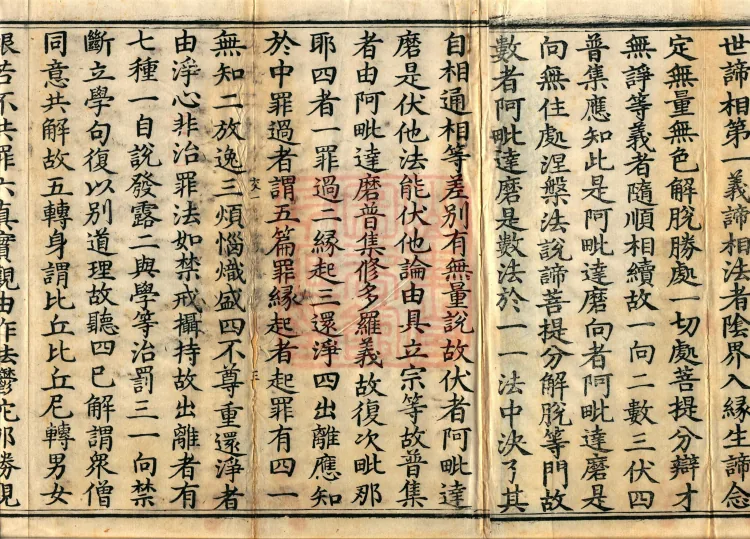 世諦相第一義諦相法者陰界入緣生諦念
定無量無色解脫勝處一切處菩提分辯才
無諍等義者隨順相續故一向二數三伏四
普集應知此是阿毗達磨向者阿毗達磨是
向無住處涅槃法說諦菩提分解脫等門故
數者阿毗達磨是數法於一一法中決了其
自相通相等差別有無量說故伏者阿毗達
磨是伏他法能伏他論由具立宗等故普集
者由阿毗達磨普集修多羅義故復次毗那
耶四者一罪過二緣起三還淨四出離應知
於中罪過者謂五篇罪緣起者起罪有四一
無知二放逸三煩惱熾盛四不尊重還淨者
由淨心非治罪法如禁戒攝持故出離者有
七種一自說發露二與學等治罰三一向禁
斷立學句復以別道理故聽四已解謂衆僧
同意共解故五轉身謂比丘比丘尼轉男女
根若不共罪六真實觀由作法鬱陀那勝觀